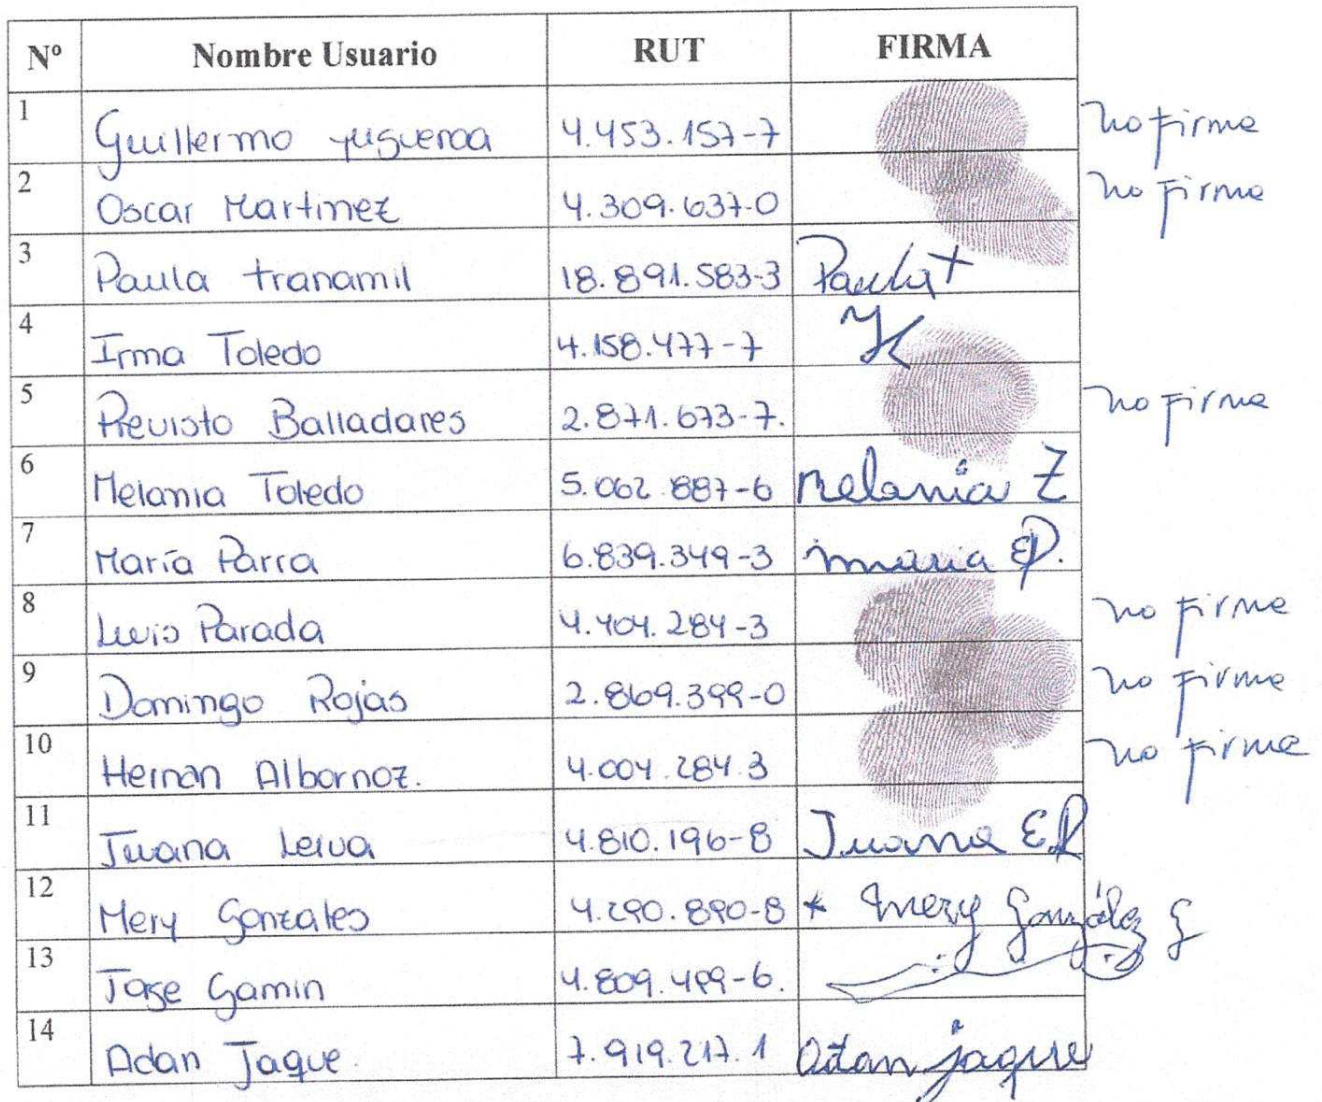 Nº Nombre Usuario RUT FIRMA
1 Guillermo yugueroa 4.453.157-7 no firma
2 Oscar Martinez 4.309.637-0 no firma
3 Paula tranamil 18.891.583-3 Paula t
4 Irma Toledo 4.158.477-7
5 Previsto Balladares 2.871.673-7. no firma
6 Melania Toledo 5.062.887-6 Melania Z
7 María Parra 6.839.349-3 maria EP.
8 Luis Parada 4.404.284-3 no firma
9 Domingo Rojas 2.869.399-0 no firma
10 Hernan Albornoz. 4.004.284.3 no firma
11 Juana Leiva 4.810.196-8 Juana ER
12 Mery Gonzales 4.290.890-8 * Mery González G
13 Jose Gamin 4.809.499-6.
14 Adan Jaque. 7.919.217.1 adan jaque